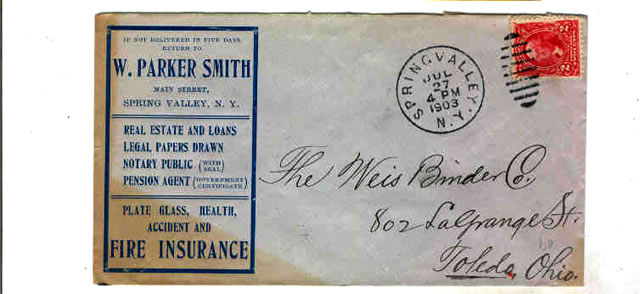 IF NOT DELIVERED IN FIVE DAYS
RETURN TO
W. PARKER SMITH
MAIN STREET,
SPRING VALLEY, N. Y.
REAL ESTATE AND LOANS
LEGAL PAPERS DRAWN
NOTARY PUBLIC (WITH SEAL)
PENSION AGENT (GOVERNMENT CERTIFICATE)
PLATE GLASS, HEALTH,
ACCIDENT AND
FIRE INSURANCE
SPRING VALLEY,
JUL
27
4 PM
1903
N.Y.
The Weis Binder Co.
802 LaGrange St.
Toledo, Ohio.